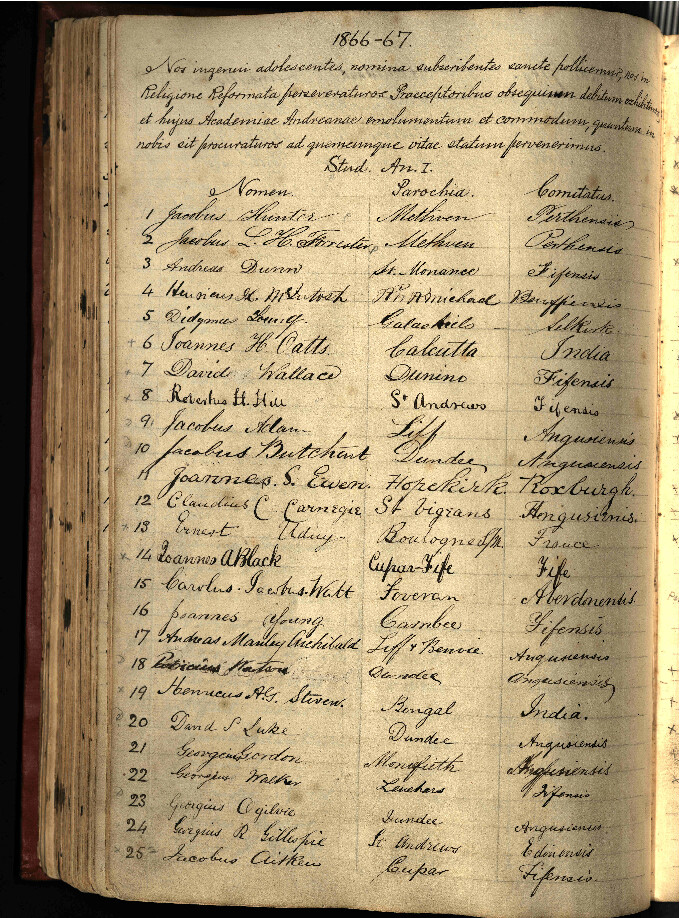 1866-67.
Nos ingenui adolescentes, nomina subscribentes sancte pollicemur, nos in
Religione Reformata perseveraturos Praeceptoribus obsequium debitum exhibituros
et hujus Academiae Andreanae emolumentum et commodum, quantum in
nobis sit procuraturos ad quemcumque vitae statum pervenerimus.
Stud. An. I.
Nomen. Parochia. Comitatus.
1 Jacobus Hunter Methven Perthensis
2 Jacobus L. H. Forrester Methven Perthensis
3 Andreas Dunn St. Monance Fifensis
4 Henricus McIntosh Banffiensis
5 Didymus Young Galashiels Selkirk
6 Joannes H. Catts. Calcutta India
7 David Wallace Dunino Fifensis
8 Robertus H. Hill St Andrews Fifensis
9 Jacobus Adam Liff Angusiensis
10 Jacobus Butchart Dundee Angusiensis
11 Joannes. S. Ewen. Hopekirk. Roxburgh.
12 Claudius C. Carnegie St Vigeans Angusiensis.
13 Ernest Boulogne s/M. France
14 Joannes A Black Cupar-Fife Fife
15 Carolus. Jacobus. Watt Foveran Aberdonensis.
16 Joannes Young Carnbee Fifensis
17 Andreas Manley Archibald Liff & Benvie Angusiensis
18 Watson Dundee Angusiensis
19 Henricus A. G. Steven. Bengal India.
20 David S Luke Dundee Angusiensis
21 Georgius Gordon Monifieth Angusiensis
22 Georgius Walker Leuchars Fifensis
23 Georgius Ogilvie Dundee Angusiensis
24 Georgius R Gillespie St Andrews Edinensis
25 Jacobus Aitken Cupar Fifensis.